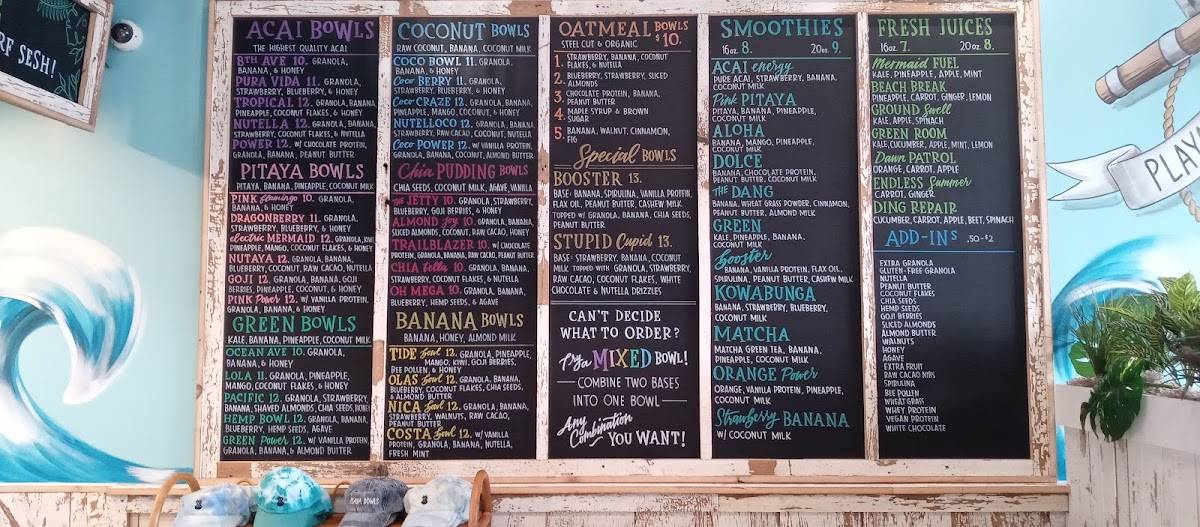 RF SESH!
ACAI BOWLS
THE HIGHEST QUALITY ACAI
8TH AVE 10. GRANOLA,
BANANA, & HONEY
PURA VIDA 11. GRANOLA,
STRAWBERRY, BLUEBERRY, & HONEY
TROPICAL 12. GRANOLA, BANANA,
PINEAPPLE, COCONUT FLAKES, & HONEY
NUTELLA 12. GRANOLA, BANANA,
STRAWBERRY, COCONUT FLAKES, & NUTELLA
POWER 12. W/ CHOCOLATE PROTEIN,
GRANOLA, BANANA, PEANUT BUTTER
PITAYA BOWLS
PITAYA, BANANA, PINEAPPLE, COCONUT MILK
PINK flamingo 10. GRANOLA,
BANANA, & HONEY
DRAGONBERRY 11. GRANOLA,
STRAWBERRY, BLUEBERRY, & HONEY
electric MERMAID 12. GRANOLA, KIWI,
PINEAPPLE, MANGO, COCONUT FLAKES, & HONEY
NUTAYA 12. GRANOLA, BANANA,
BLUEBERRY, COCONUT, RAW CACAO, NUTELLA
GOJI 12. GRANOLA, BANANA, GOJI
BERRIES, PINEAPPLE, COCONUT, & HONEY
PINK Power 12. W/ VANILLA PROTEIN,
GRANOLA, BANANA, & HONEY
GREEN BOWLS
KALE, BANANA, PINEAPPLE, COCONUT MILK
OCEAN AVE 10. GRANOLA,
BANANA, & HONEY
LOLA 11. GRANOLA, PINEAPPLE,
MANGO, COCONUT FLAKES, & HONEY
PACIFIC 12. GRANOLA, STRAWBERRY,
BANANA, SHAVED ALMONDS, CHIA SEEDS, HONEY
HEMP BOWL 12. GRANOLA, BANANA,
BLUEBERRY, HEMP SEEDS, AGAVE
GREEN Power 12. W/ VANILLA PROTEIN,
GRANOLA, BANANA, & ALMOND BUTTER
COCONUT BOWLS
RAW COCONUT, BANANA, COCONUT MILK
COCO BOWL 11. GRANOLA,
BANANA, & HONEY
Coco BERRY 11. GRANOLA,
STRAWBERRY, BLUEBERRY, & HONEY
Coco CRAZE 12. GRANOLA, BANANA,
PINEAPPLE, MANGO, COCONUT, & HONEY
NUTELLOCO 12. GRANOLA, BANANA,
STRAWBERRY, RAW CACAO, COCONUT, NUTELLA
Coco POWER 12. W/ VANILLA PROTEIN,
GRANOLA, BANANA, COCONUT, ALMOND BUTTER
Chia PUDDING BOWLS
CHIA SEEDS, COCONUT MILK, AGAVE, VANILLA
THE JETTY 10. GRANOLA, STRAWBERRY,
BLUEBERRY, GOJI BERRIES, & HONEY
ALMOND Joy 10. GRANOLA, BANANA,
SLICED ALMONDS, COCONUT, RAW CACAO, HONEY
TRAILBLAZER 10. W/ CHOCOLATE
PROTEIN, GRANOLA, BANANA, RAW CACAO, PEANUT BUTTER
CHIA tella 10. GRANOLA, BANANA,
STRAWBERRY, COCONUT FLAKES, & NUTELLA
OH MEGA 10. GRANOLA, BANANA,
BLUEBERRY, HEMP SEEDS, & AGAVE
BANANA BOWLS
BANANA, HONEY, ALMOND MILK
TIDE bowl 12. GRANOLA, PINEAPPLE,
MANGO, KIWI, GOJI BERRIES,
BEE POLLEN, & HONEY
OLAS bowl 12. GRANOLA, BANANA,
BLUEBERRY, COCONUT FLAKES, CHIA SEEDS,
& ALMOND BUTTER
NICA bowl 12. GRANOLA, BANANA,
STRAWBERRY, WALNUTS, RAW CACAO,
PEANUT BUTTER
COSTA bowl 12. W/ VANILLA
PROTEIN, GRANOLA, BANANA, NUTELLA,
FRESH MINT
OATMEAL BOWLS
STEEL CUT & ORGANIC $10.
1. STRAWBERRY, BANANA, COCONUT
FLAKES, & NUTELLA
2. BLUEBERRY, STRAWBERRY, SLICED
ALMONDS
3. CHOCOLATE PROTEIN, BANANA,
PEANUT BUTTER
4. MAPLE SYRUP & BROWN
SUGAR
5. BANANA, WALNUT, CINNAMON,
FIG
Special BOWLS
BOOSTER 13.
BASE: BANANA, SPIRULINA, VANILLA PROTEIN,
FLAX OIL, PEANUT BUTTER, CASHEW MILK
TOPPED W/ GRANOLA, BANANA, CHIA SEEDS,
PEANUT BUTTER
STUPID Cupid 13.
BASE: STRAWBERRY, BANANA, COCONUT
MILK TOPPED WITH GRANOLA, STRAWBERRY,
RAW CACAO, COCONUT FLAKES, WHITE
CHOCOLATE & NUTELLA DRIZZLES
CAN'T DECIDE
WHAT TO ORDER?
Try a MIXED BOWL!
COMBINE TWO BASES
INTO ONE BOWL
Any Combination
YOU WANT!
SMOOTHIES
16oz. 8. 20oz. 9.
ACAI energy
PURE ACAI, STRAWBERRY, BANANA,
COCONUT MILK
Pink PITAYA
PITAYA, BANANA, PINEAPPLE,
COCONUT MILK
ALOHA
BANANA, MANGO, PINEAPPLE,
COCONUT MILK
DOLCE
BANANA, CHOCOLATE PROTEIN,
PEANUT BUTTER, COCONUT MILK
THE DANG
BANANA, WHEAT GRASS POWDER, CINNAMON,
PEANUT BUTTER, ALMOND MILK
GREEN
KALE, PINEAPPLE, BANANA,
COCONUT MILK
Booster
BANANA, VANILLA PROTEIN, FLAX OIL,
SPIRULINA, PEANUT BUTTER, CASHEW MILK
KOWABUNGA
BANANA, STRAWBERRY, BLUEBERRY,
COCONUT MILK
MATCHA
MATCHA GREEN TEA, BANANA,
PINEAPPLE, COCONUT MILK
ORANGE Power
ORANGE, VANILLA PROTEIN, PINEAPPLE,
COCONUT MILK
Strawberry BANANA
W/ COCONUT MILK
FRESH JUICES
16oz. 7. 20oz. 8.
Mermaid FUEL
KALE, PINEAPPLE, APPLE, MINT
BEACH BREAK
PINEAPPLE, CARROT, GINGER, LEMON
GROUND Swell
KALE, APPLE, SPINACH
GREEN ROOM
KALE, CUCUMBER, APPLE, MINT, LEMON
Dawn PATROL
ORANGE, CARROT, APPLE
ENDLESS Summer
CARROT, GINGER
DING REPAIR
CUCUMBER, CARROT, APPLE, BEET, SPINACH
ADD-INS .50-$2
EXTRA GRANOLA
GLUTEN-FREE GRANOLA
NUTELLA
PEANUT BUTTER
COCONUT FLAKES
CHIA SEEDS
HEMP SEEDS
GOJI BERRIES
SLICED ALMONDS
ALMOND BUTTER
WALNUTS
HONEY
AGAVE
EXTRA FRUIT
RAW CACAO NIBS
SPIRULINA
BEE POLLEN
WHEAT GRASS
WHEY PROTEIN
VEGAN PROTEIN
WHITE CHOCOLATE
PLAY
BOWLS